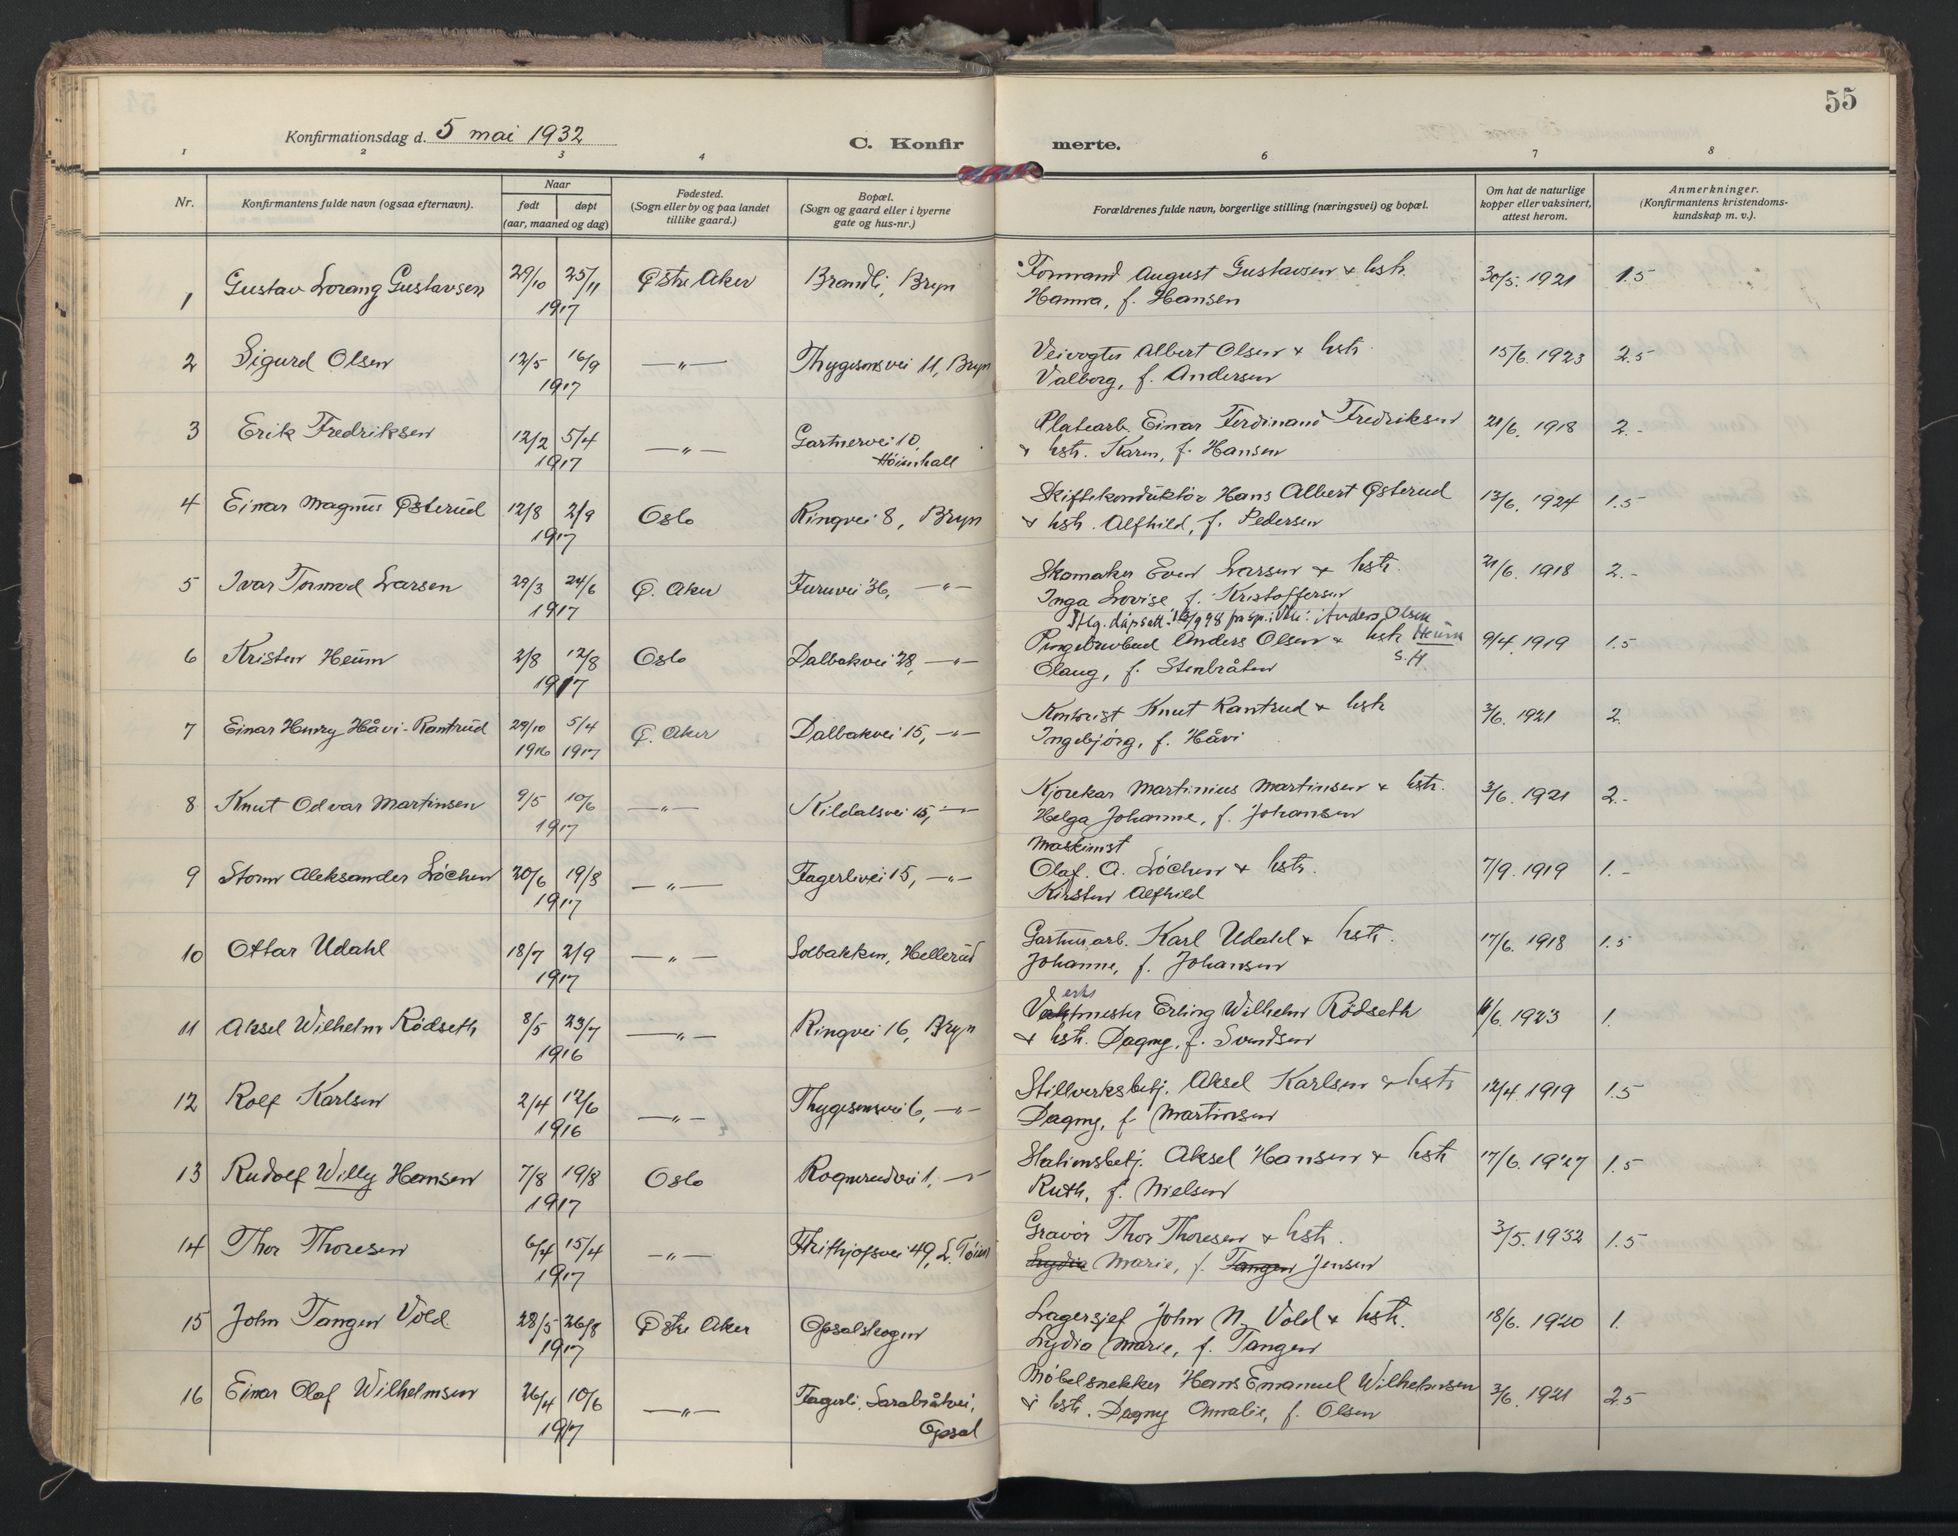 55
Konfirmationsdag d. 5 mai 1932
C. Konfirmerte.
1 2 3 4 5 6 7 8
Nr. Konfirmantens fulde navn (ogsaa efternavn). Naar født døpt (aar, maaned og dag) Fødested. (Sogn eller by og paa landet tillike gaard.) Bopæl. (Sogn og gaard eller i byerne gate og hus-nr.) Forældrenes fulde navn, borgerlige stilling (næringsvei) og bopæl. Om hat de naturlige kopper eller vaksinert, attest herom. Anmerkninger. (Konfirmantens kristendomskundskap m. v.).
1 Gustav Lorang Gustavsen 29/10 25/11 1917 Østre Aker Brandli, Bryn Formand August Gustavsen & hstr. 30/5. 1921 1.5
Hanna, f. Hansen
2 Sigurd Olsen 12/5 16/9 1917 —„— Thygesonsvei 11, Bryn Veivogter Albert Olsen & hstr. 15/6. 1923 2.5
Valborg, f. Andersen
3 Erik Fredriksen 12/2 5/4 1917 —„— Gartnervei 10, Høienhall Platearb. Einar Ferdinand Fredriksen 21/6. 1918 2.-
& hstr. Karen, f. Hansen
4 Einar Magnus Østerud 12/8 2/9 1917 Oslo Ringvei 8, Bryn Skiftekonduktør Hans Albert Østerud 13/6. 1924 1.5
& hstr. Alfhild, f. Pedersen
5 Ivar Tormod Larsen 29/3 24/6 1917 Ø. Aker Furuvei 36, —„— Skomaker Even Larsen & hstr. 21/6. 1918 2.-
Inga Lovise f. Kristoffersen
Iflg. dåpsatt. : Anders Olsen Heum S.H.
6 Kristen Heum 2/8 12/8 1917 Oslo Dalbakvei 28, —„— Pengebrevbud Anders Olsen & hstr 9/4. 1919 1.5
Olaug, f. Stenbråten
7 Einar Henry Håvi-Rantrud 29/10 1916 5/4 1917 Ø. Aker Dalbakvei 15, —„— Kontorist Knut Rantrud & hstr 3/6. 1921 2.
Ingebjørg, f. Håvi
8 Knut Odvar Martinsen 9/5 10/6 1917 —„— Kildalsvei 15, —„— Kjørekar Martinius Martinsen & hstr. 3/6. 1921 2.-
Helga Johanne, f. Johansen
9 Storm Aleksander Løchen 20/6 19/8 1917 —„— Fagerlivei 15, —„— Maskinist
Olaf. A. Løchen & hstr. 7/9. 1919 1.-
Kirsten Alfhild
10 Ottar Udahl 18/7 2/9 1917 —„— Solbakken, Hellerud Gartnerarb. Karl Udahl & hstr. 17/6. 1918 1.5
Johanne, f. Johansen
11 Aksel Wilhelm Rødseth 8/5 23/7 1916 —„— Ringvei 16, Bryn Verksmester Erling Wilhelm Rødseth 11/6. 1923 1.
& hstr. Dagny, f. Svendsen
12 Rolf Karlsen 2/4 12/6 1916 —„— Thygesonsvei 6, —„— Stillverksbetj. Aksel Karlsen & hstr 12/4. 1919 1.5
Dagny, f. Martinsen
13 Rudolf Willy Hansen 7/8 19/8 1917 Oslo Rognerudvei 1, —„— Stationsbetj. Aksel Hansen & hstr 17/6. 1927 1.5
Ruth, f. Nielsen
14 Thor Thoresen 6/4 15/4 1917 —„— Frithjofsvei 49, L. Tøien Gravør Thor Thoresen & hstr. 3/5. 1932 1.5
Lydia Marie, f. Tangen Jensen
15 John Tangen Vold 28/5 26/8 1917 Østre Aker Opsalskogen Lagersjef John N. Vold & hstr. 18/6. 1920 1.
Lydia Marie, f. Tangen
16 Einar Olaf Wilhelmsen 26/4 10/6 1917 —„— Fagerli, Sarabråtvei, Opsal Møbelsnekker Hans Emanuel Wilhelmsen 3/6. 1921 2.5
& hstr. Dagny Amalie, f. Olsen